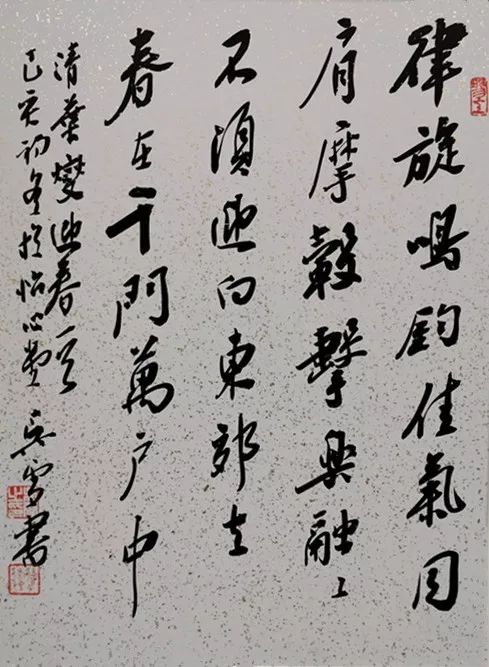 律旋鳴鈞佳氣同
肩摩轂擊樂融〻
不須迎向東郊去
春在千門萬戶中
清葉燮迎春一首
己亥初冬於怡心堂 吴雪書